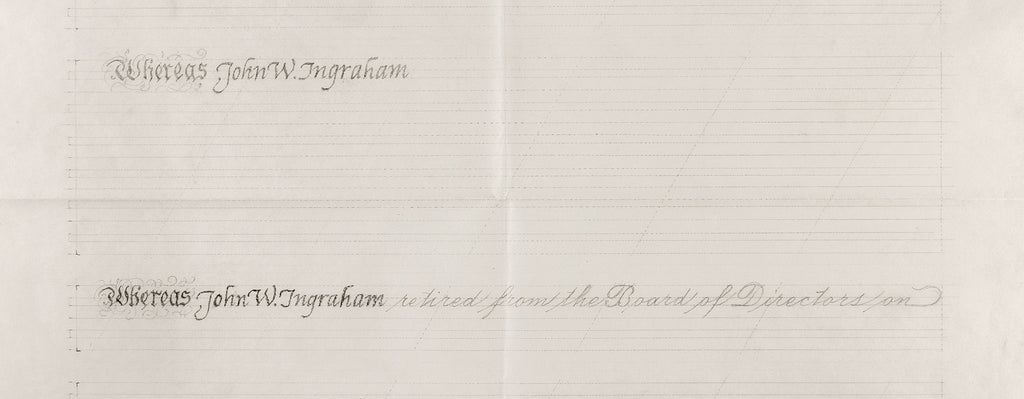 Whereas John W. Ingraham
Whereas John W. Ingraham retired from the Board of Directors on